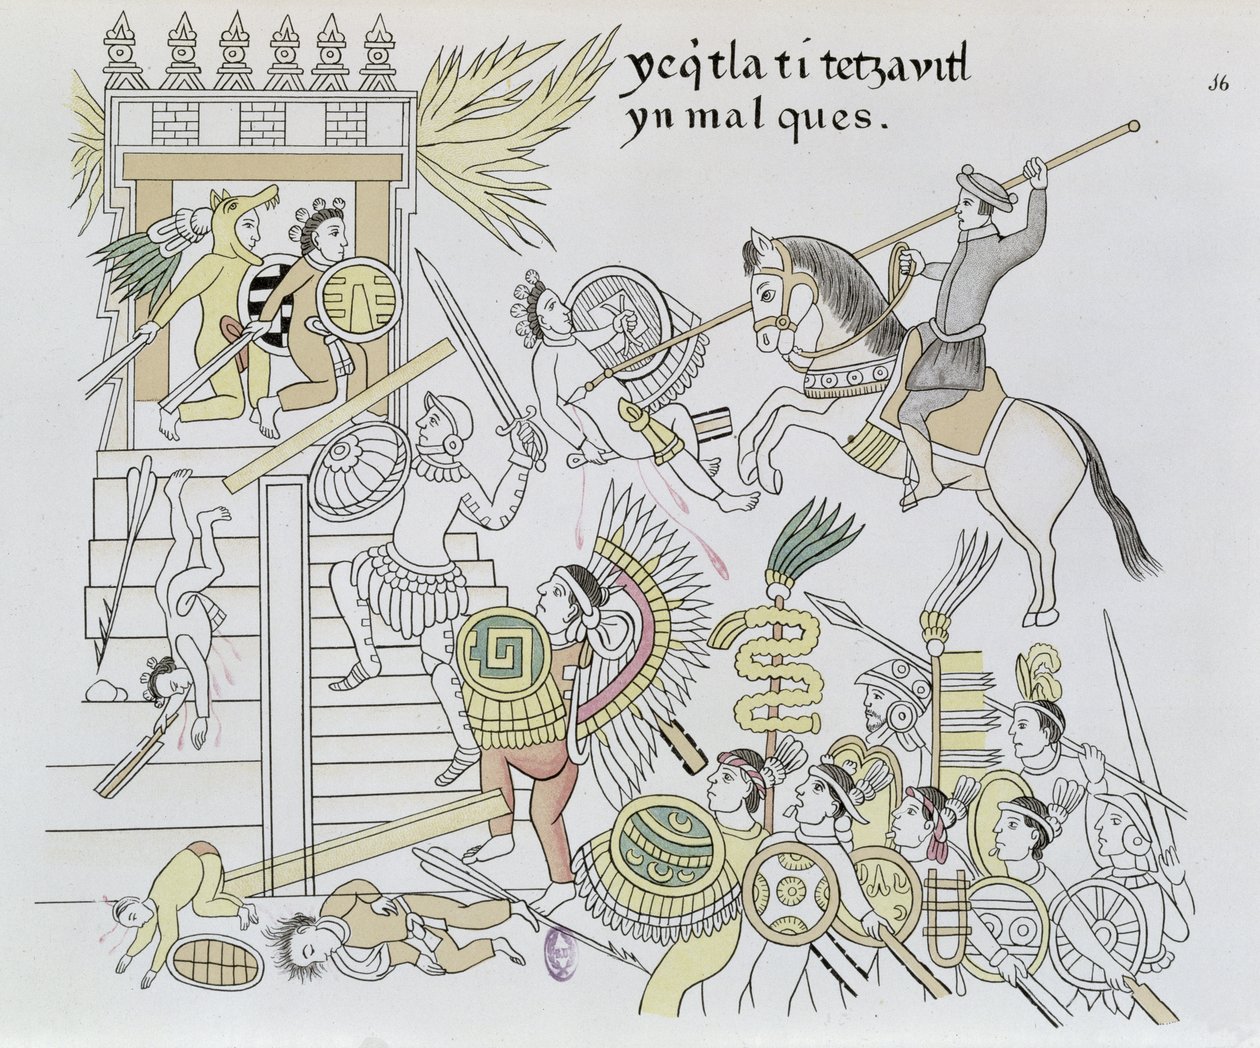 16
ycq̓tla ti tetzavitl
yn malques.